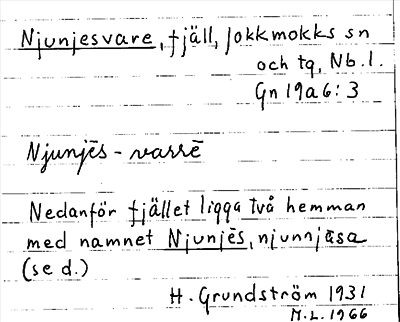 Njunjesvare, fjäll, Jokkmokks sn
och tg, Nb. l.
Gn 19a6:3
Njunjēs-varrē
Nedanför fjället ligga två hemman
med namnet Njunjēs, njunnjāsa
(se d.)
H. Grundström 1931
M.L. 1966